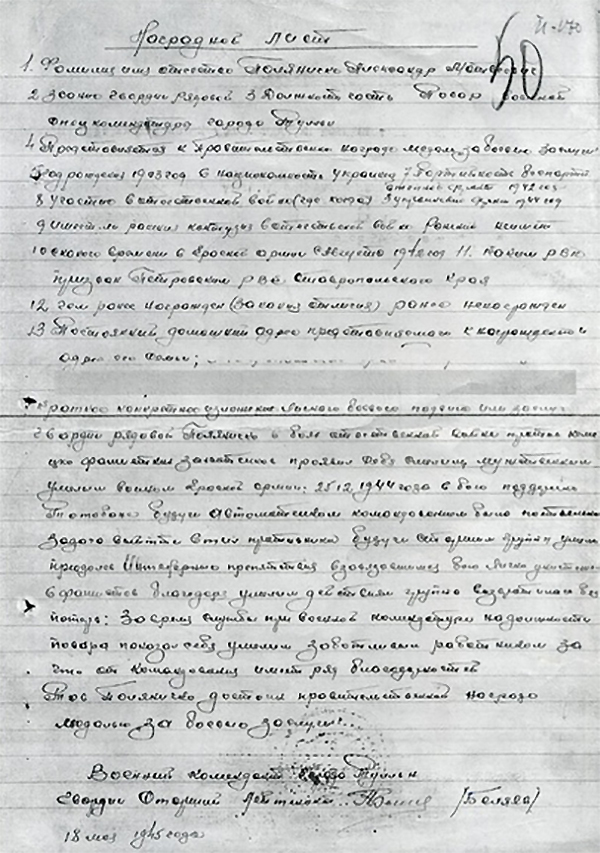 Наградной лист
50
1. Фамилия имя отчество Поляничко Александр
2 Звание гвардии рядовой 3 Должность часть Повар военной
комендатура города Тулльн
4 Представляется к правительственной награде медаль за боевые заслуги
5 год рождения 1903 год 6 национальность украинец 7 Партийность беспартий
8 Участие в отечественной войне (где когда) 3 Украинский фронт 1944 год
9 имеет ли ранения контузия в отечественной войне Ранений не имеет
10 с какого времени в Красной армии с Августа 11. Каким РВК
призван Петровским РВК Ставропольского края
12 чем ранее награжден (за какие отличия) ранее не награжден
13 Постоянный домашний адрес представляемого к награждению и
адрес его семьи;
Краткое конкретное изложение личного боевого подвига или заслуг
Гвардии рядовой Поляничко в боях отечественной войны против неме
цко фашистских захватчиков проявил себя смелым, мужественным
умелым воином Красной армии: 25.12.1944 года в бою
будучи автоматчиком командованием была поставлена
задача выйти в тыл противника будучи старшим группы умело
преодолев препятствия в завязавшемся бою лично уничтожил
6 фашистов благодаря умелым действиям группа возвратилась без
потерь: За время службы при военной комендатуре на должности
повара показал себя умелым заботливым работником за
что от командования имеет ряд благодарностей
Тов Поляничко достоин правительственной награды
медалью за боевые заслуги.
Военный комендант города Тулльн
Гвардии Старший Лейтенант [Беляев]
18 мая 1945 года